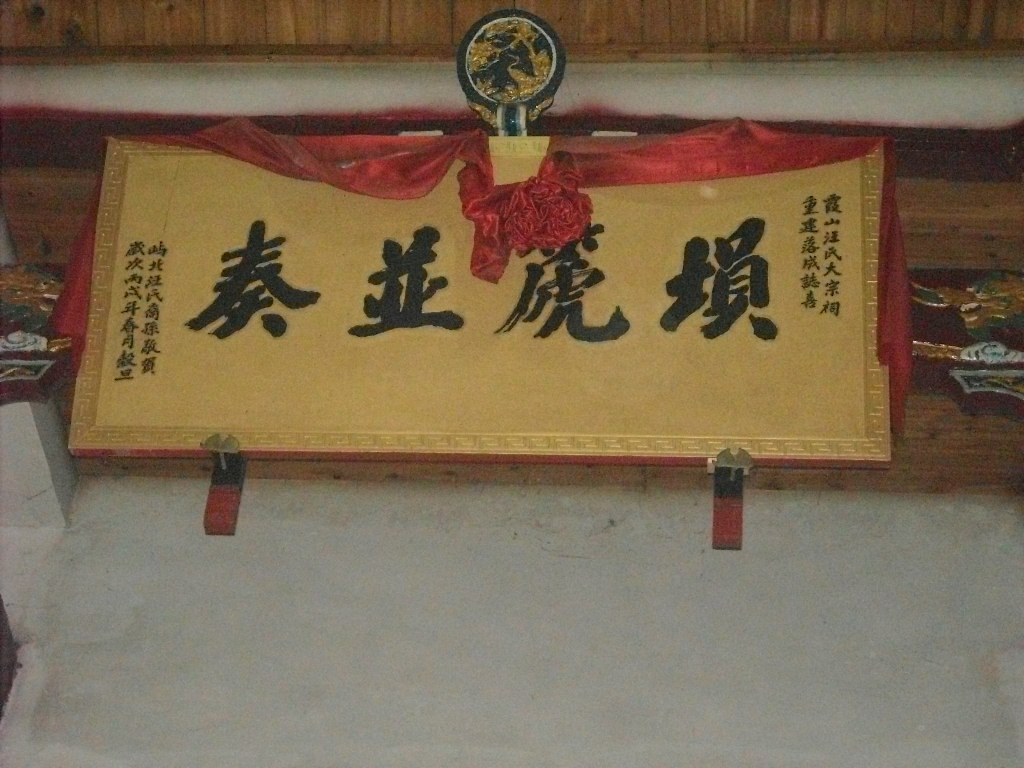 霞山汪氏大宗祠
重建落成誌喜
塤篪並奏
屿北汪氏裔孫敬賀
歲次丙戌年春月穀旦